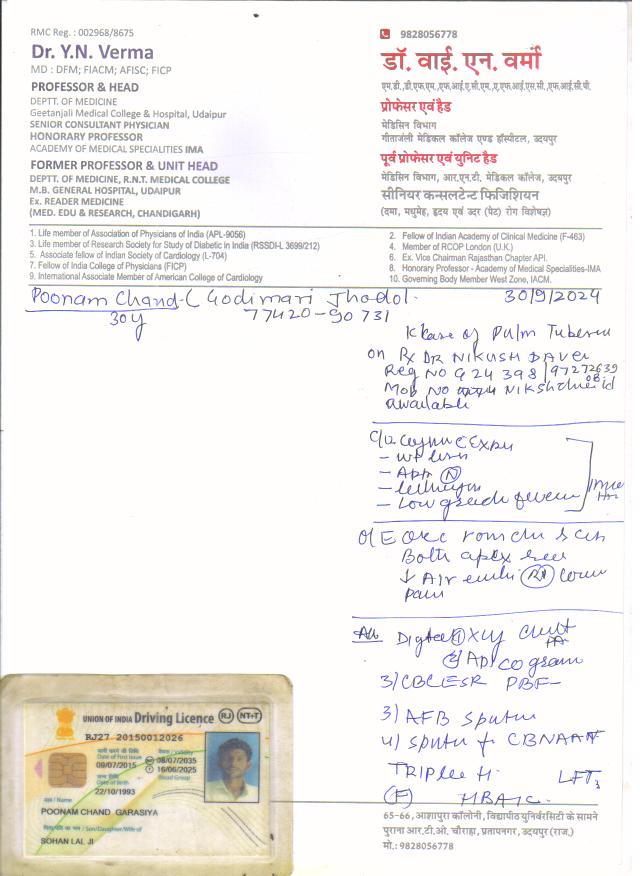 RMC Reg. : 002968/8675
Dr. Y.N. Verma
MD : DFM; FIACM; AFISC; FICP
PROFESSOR & HEAD
DEPTT. OF MEDICINE
Geetanjali Medical College & Hospital, Udaipur
SENIOR CONSULTANT PHYSICIAN
HONORARY PROFESSOR
ACADEMY OF MEDICAL SPECIALITIES IMA
FORMER PROFESSOR & UNIT HEAD
DEPTT. OF MEDICINE, R.N.T. MEDICAL COLLEGE
M.B. GENERAL HOSPITAL, UDAIPUR
Ex. READER MEDICINE
(MED. EDU & RESEARCH, CHANDIGARH)
9828056778
डॉ. वाई. एन. वर्मा
एम.डी.,डी.एफ.एम.,एफ.आई.ए.सी.एम.,ए.एफ.आई.एस.सी.,एफ.आई.सी.पी.
प्रोफेसर एवं हैड
मेडिसिन विभाग
गीतांजली मेडिकल कॉलेज एण्ड हॉस्पीटल, उदयपुर
पूर्व प्रोफेसर एवं युनिट हैड
मेडिसिन विभाग, आर.एन.टी. मेडिकल कॉलेज, उदयपुर
सीनियर कन्सलटेन्ट फिजिशियन
(दमा, मधुमेह, हृदय एवं उदर (पेट) रोग विशेषज्ञ)
1. Life member of Association of Physicians of India (APL-9056)
3. Life member of Research Society for Study of Diabetic in India (RSSDI-L 3699/212)
5. Associate fellow of Indian Society of Cardiology (L-704)
7. Fellow of India College of Physicians (FICP)
9. International Associate Member of American College of Cardiology
2. Fellow of Indian Academy of Clinical Medicine (F-463)
4. Member of RCOP London (U.K.)
6. Ex. Vice Chairman Rajasthan Chapter API.
8. Honorary Professor - Academy of Medical Specialities-IMA
10. Governing Body Member West Zone, IACM.
Poonam Chand - ( Godimari Jhadol. 30/9/2024
30y 77420-90731
Kcase of Pulm
on Rx DR NIKUSH DAVE
Reg NO G 24398 / 97272639
08
Mob NO Nikshchue id
available
C/o
- wt
- App (N)
-
- Low grade fever
O/E
Both apex
↓ Air (Rt) lower
Adv Digital (1) Xray Chest PA
(2)
3) CBC ESR PBF
3) AFB sputum
4) sputum f CBNAAT
TRIPLE H LFT
(F) HBA1C
UNION OF INDIA Driving Licence RJ NT+T
RJ27 20150012026
जारी करने की तिथि
Date of First Issue
09/07/2015
वैधता / Validity
NT 08/07/2035
T 16/06/2025
जन्म तिथि
Date of Birth
Blood Group
22/10/1993
नाम / Name
POONAM CHAND GARASIYA
Son/Daughter/Wife of
SOHAN LAL JI
65-66, आशापुरा कॉलोनी, विद्यापीठ युनिवर्सिटी के सामने
पुराना आर.टी.ओ. चौराहा, प्रतापनगर, उदयपुर (राज.)
मो.: 9828056778